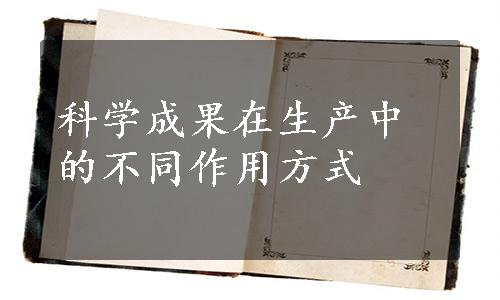 科学成果在生产中
的不同作用方式